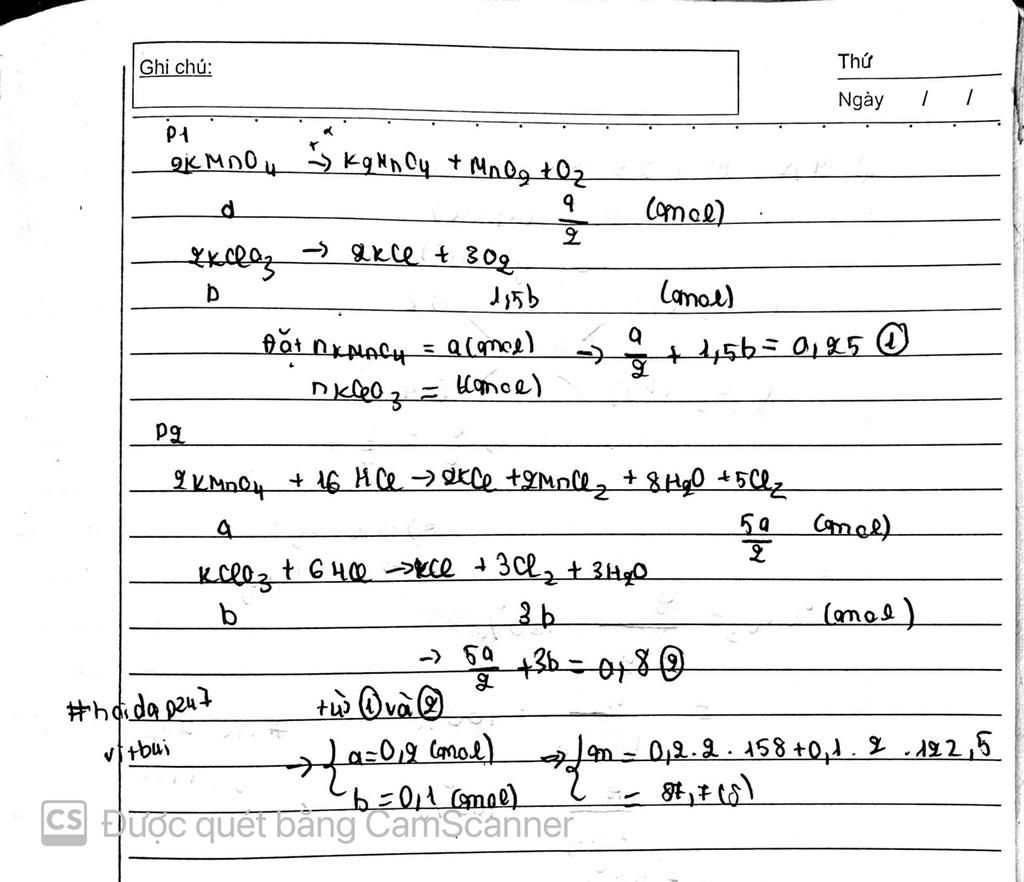 Ghi chú:
Thứ
Ngày / /
P1
2KMnO4 → K2MnO4 + MnO2 + O2
a a/2 (mol)
2KClO3 → 2KCl + 3O2
b 1,5b (mol)
Đặt nKMnO4 = a(mol) → a/2 + 1,5b = 0,25 ①
nKClO3 = b(mol)
P2
2KMnO4 + 16 HCl → 2KCl + 2MnCl2 + 8H2O + 5Cl2
a 5a/2 (mol)
KClO3 + 6HCl → KCl + 3Cl2 + 3H2O
b 3b (mol)
→ 5a/2 + 3b = 0,8 ②
#hoidap247 từ ① và ②
vitbui → { a = 0,2 (mol) ⇒ { m = 0,2.2.158 + 0,1.2.122,5
b = 0,1 (mol) = 87,7 (g)
CS Được quét bằng CamScanner